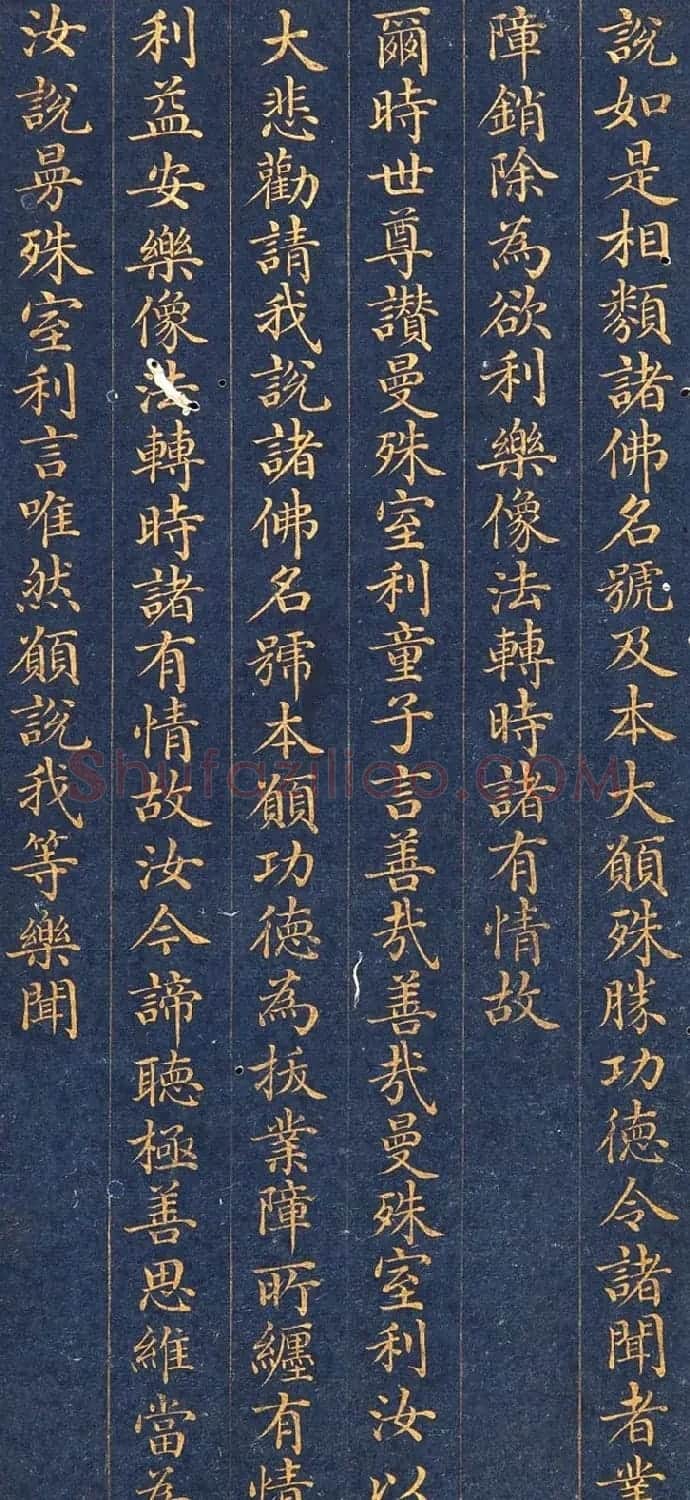 說如是相類諸佛名號及本大願殊勝功德令諸聞者業
障銷除為欲利樂像法轉時諸有情故
爾時世尊讚曼殊室利童子言善哉善哉曼殊室利汝以
大悲勸請我說諸佛名號本願功德為拔業障所纏有情
利益安樂像法轉時諸有情故汝今諦聽極善思維當為
汝說曼殊室利言唯然願說我等樂聞
Shufaziliao.COM